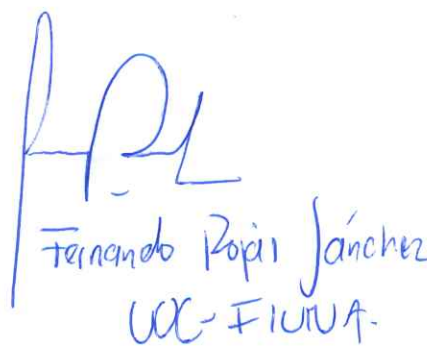 Fernando Rojas Sánchez
UOC-FIUNA.